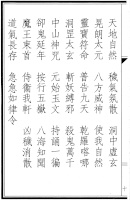 天地自然 穢氣氛散 洞中虛玄
晃朗太元 八方威神 使我自然
靈寶符命 普告九天 乾羅嗒哪
洞罡太玄 斬妖縛邪 殺鬼萬千
中山神咒 元始玉文 持誦一遍
卻鬼延年 按行五嶽 八海知聞
魔王束首 侍衛我軒 凶穢消散
道氣長存 急急如律令